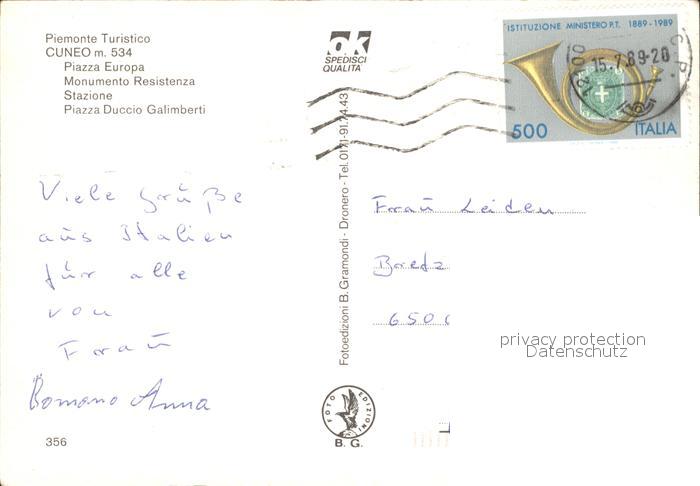 Piemonte Turistico
CUNEO m. 534
Piazza Europa
Monumento Resistenza
Stazione
Piazza Duccio Galimberti
ok
SPEDISCI
QUALITA'
ISTITUZIONE MINISTERO P.T. 1889-1989
15.7.89-20
500 ITALIA
Viele Grüße
aus Italien
für alle
von
Frau
Romano Anna
356
Fotoedizioni B. Gramondi - Dronero - Tel. 0171-91.74.43
FOTO EDIZIONI
B. G.
Frau Leiden
6500
privacy protection
Datenschutz